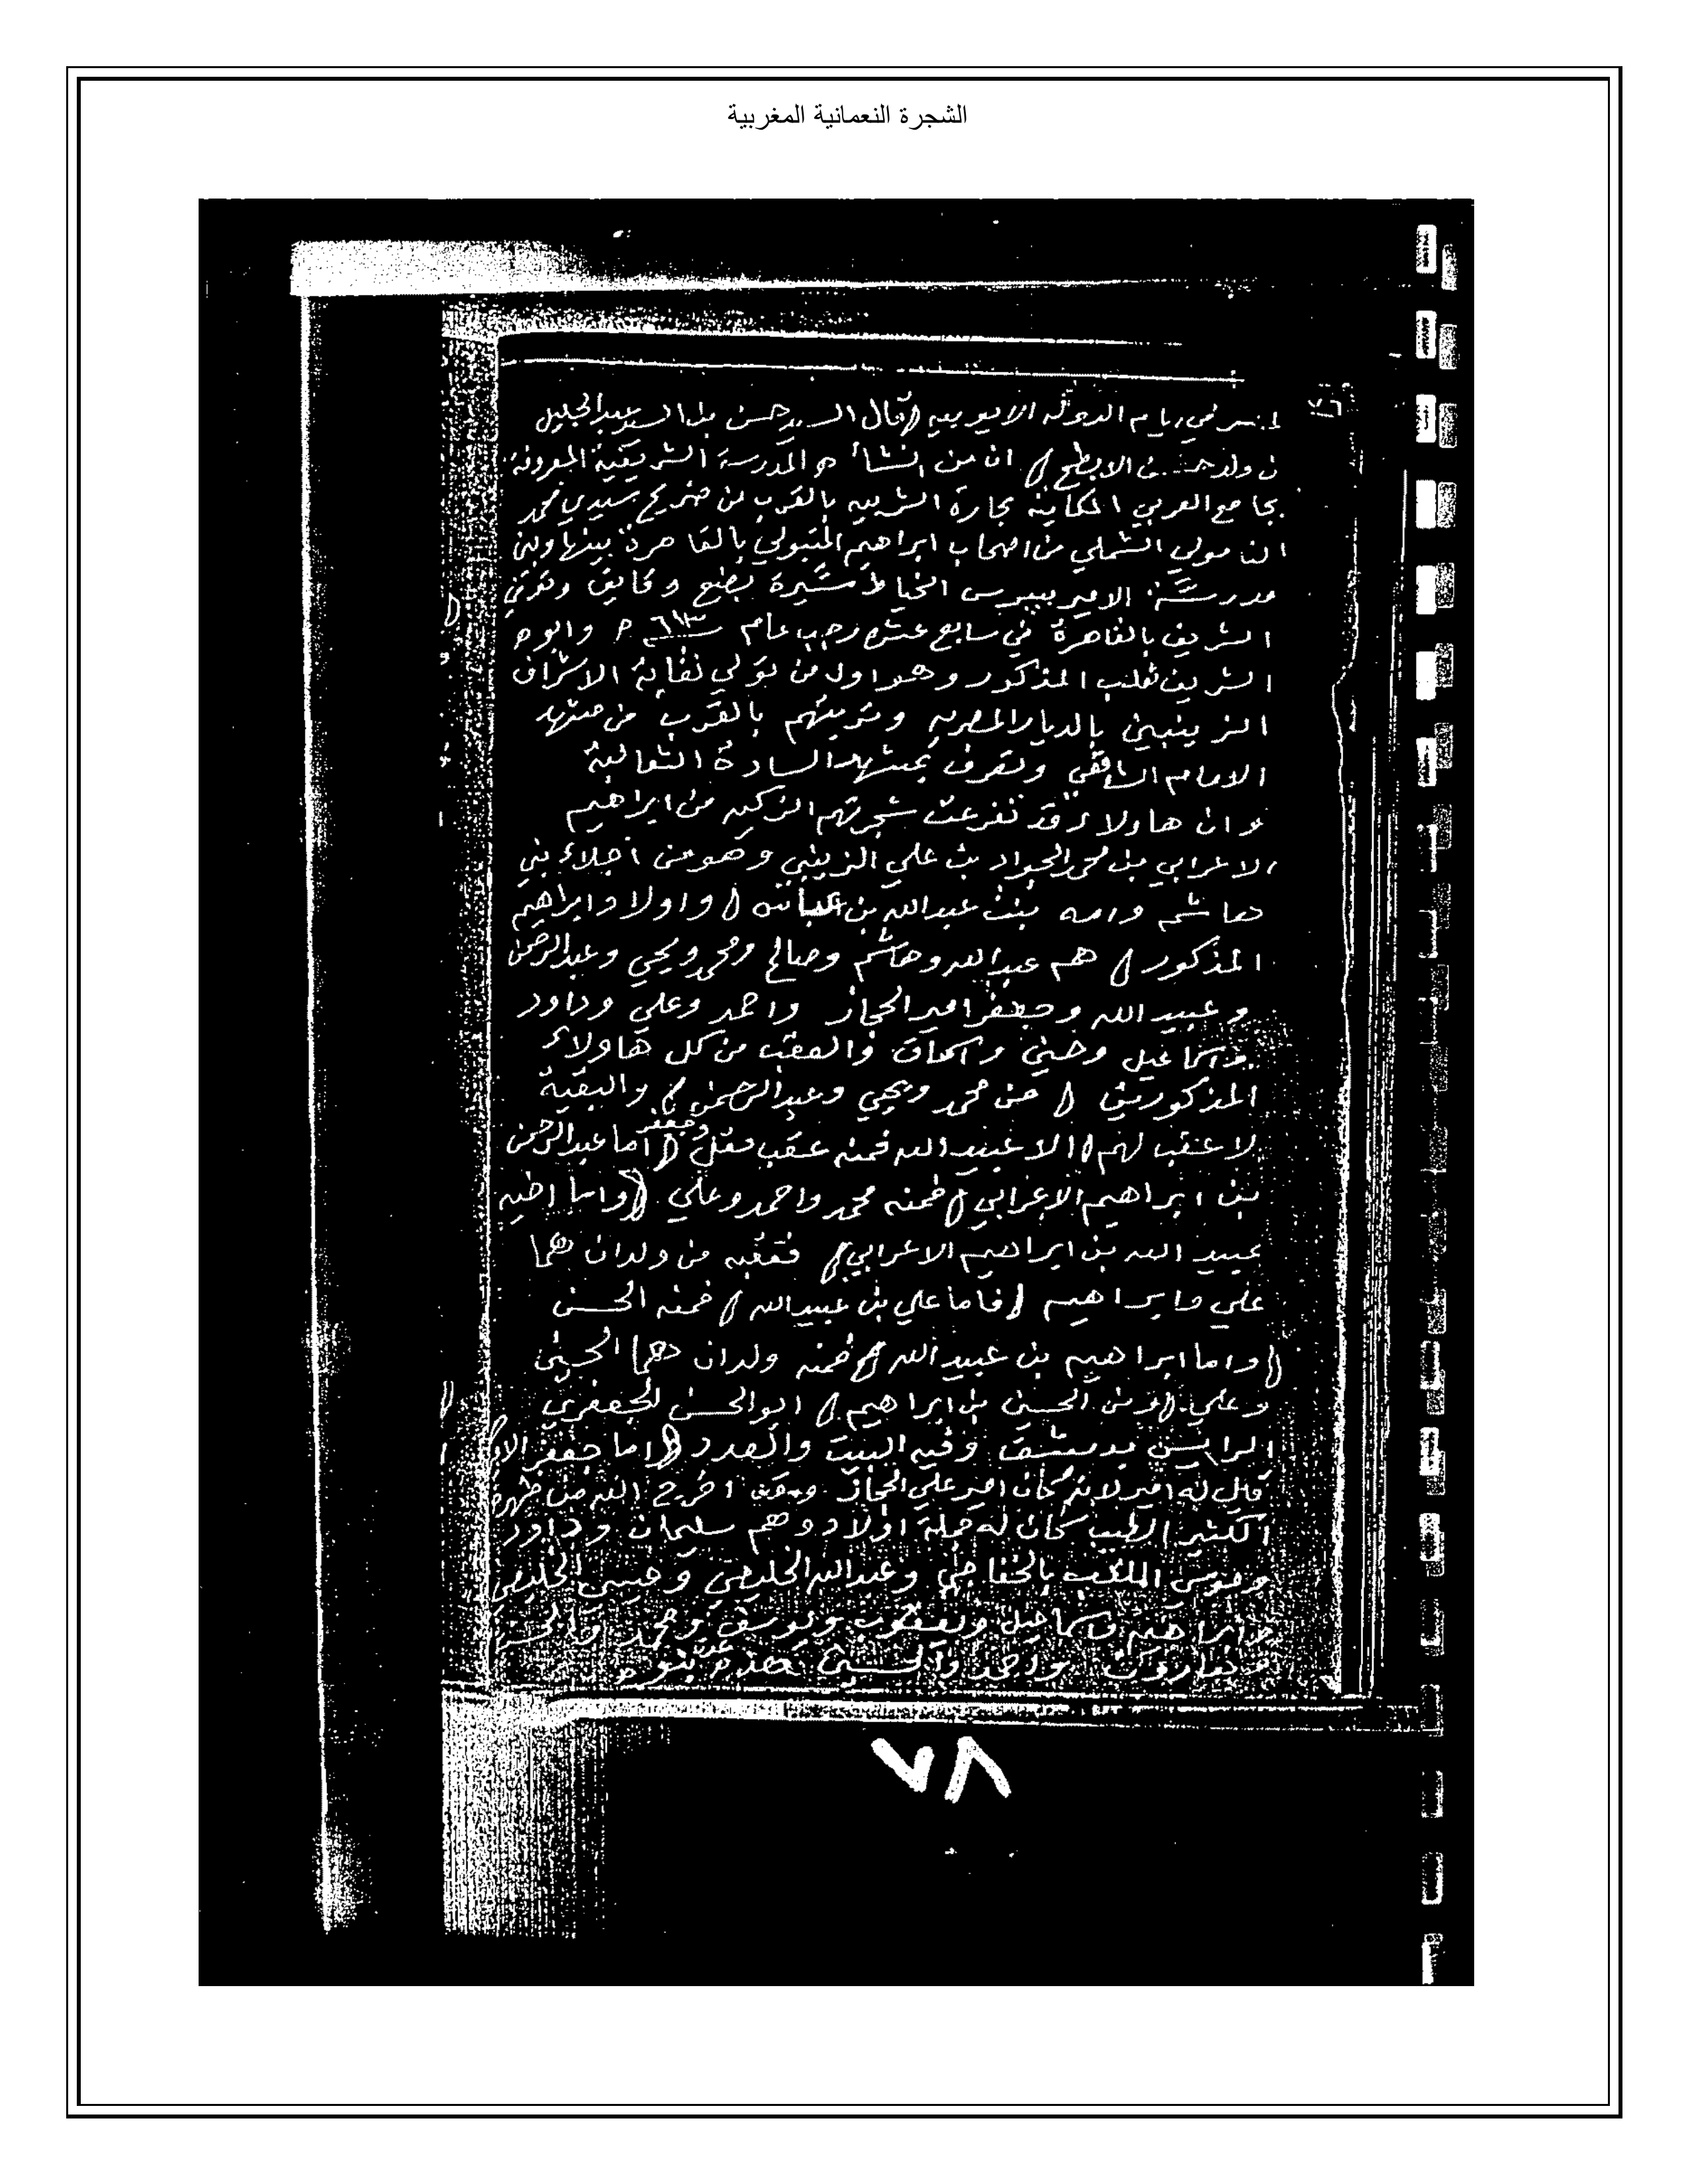 الشجرة النعمانية المغربية
٧٦
في ايام الدوله الايوبيه قال السيد حسن بن السيد عبدالجليل
ن ولد حسن الابطح ان من انشأ المدرسة الشريفية المعروفة
بجامع العربي الكاينة بحارة الشربيه بالقرب من ضريح سيدي محمد
مولي الشملي من اصحاب ابراهيم المتبولي بالقاهرة بينها وبين
مدرسة الامير بيبرس الخياط شيرة بضع دقايق وتوفي
الشريف بالقاهرة في سابع عشر رجب عام ٦١٣ وابوه
الشريف ثعلب المذكور وهو اول من تولي نقابة الاشراف
الزينبين بالديار المصريه وتربتهم بالقرب من مشهد
الامام الشافعي وتعرف بمشهد السادة الثعالبة
وان هاولاء قد تفرعت شجرتهم الزكيه من ابراهيم
الاعرابي بن محمد الجواد بن علي الزينبي وهو من اجلاء بني
هاشم وامه بنت عبدالله بن واولاد ابراهيم
المذكور هم عبدالله وهاشم وصالح ومحمد ويحيي وعبدالرحمن
وعبيد الله وجعفر امير الحجاز واحمد وعلي وداود
واسماعيل وحسني واسحاق والعقب من كل هاولاء
المذكورين من محمد ويحيي وعبدالرحمن والبقية
لا عقب لهم الا عبيد الله فمنه عقب وجعفر اما عبدالرحمن
بن ابراهيم الاعرابي فمنه محمد واحمد وعلي واما اخيه
عبيد الله بن ابراهيم الاعرابي فعقبه من ولدان هما
علي وابراهيم فاما علي بن عبيدالله فمنه الحسن
واما ابراهيم بن عبيد الله فمنه ولدان هما الحسين
وعلي ومن الحسين بن ابراهيم ابو الحسن الجعفري
الرايس بدمشق وفيه البيت والعدد اما جعفر
قيل له امير لانه كان امير علي الحجاز وقد اخرج الله من ظهره
الكثير الطيب كان له جملة اولاد وهم سليمان وداود
وموسي الملقب بالخفاجي وعبدالله الخليصي وعيسي الخليصي
وابراهيم واسماعيل ويعقوب ويوسف ومحمد والحسن
وهارون واحمد والحسين
٧٨